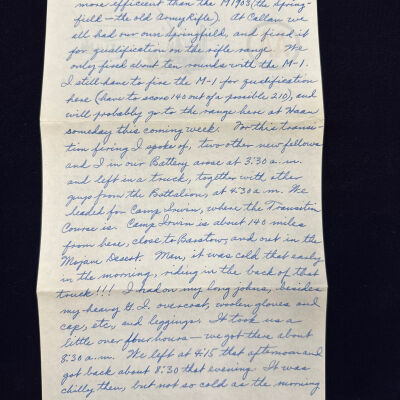 more efficient than the M1903 (the Spring-
field - the old Army Rifle). At Callan we
all had our own Springfield, and fired it
for qualification on the rifle range. We
only fired about ten rounds with the M-1.
I still have to fire the M-1 for qualification
here (have to score 140 out of a possible 210), and
will probably go to the range here at Haan
someday this coming week. For this transi-
tion firing I spoke of, two other new fellows
and I in our Battery arose at 3:30 a.m.
and left in a truck, together with other
guys from the Battalion, at 4:30 a.m. We
headed for Camp Irwin, where the Transition
Course is. Camp Irwin is about 140 miles
from here, close to Barstow, and out in the
Mojave Desert. Man, it was cold that early
in the morning, riding in the back of that
truck!!! I had on my long johns, besides
my heavy G.I. overcoat, woolen gloves and
cap, etc., and leggings. It took us a
little over four hours - we got there about
8:30 a.m. We left at 4:15 that afternoon and
got back about 8:30 that evening. It was
chilly then, but not so cold as the morning